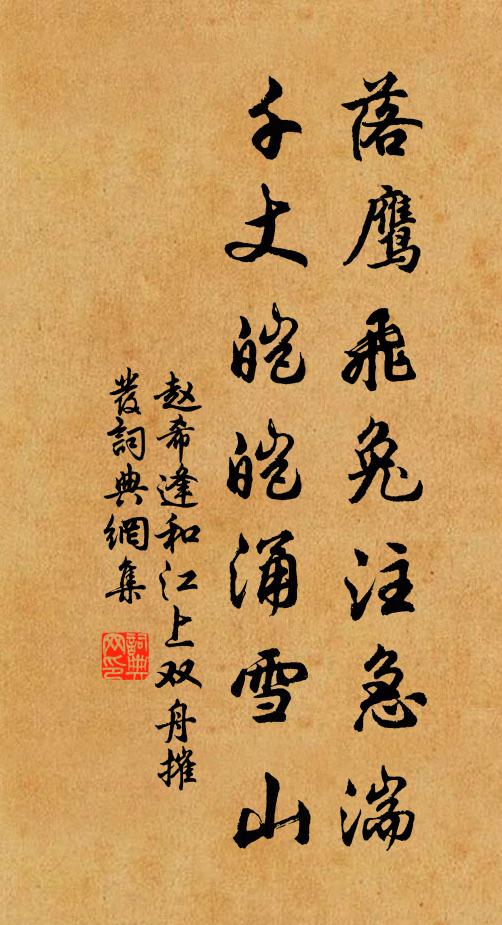 落鹰飛兔注急湍
千丈皑皑涌雪山
赵希逢和江上双舟摧
發詞典網集
詞典网印